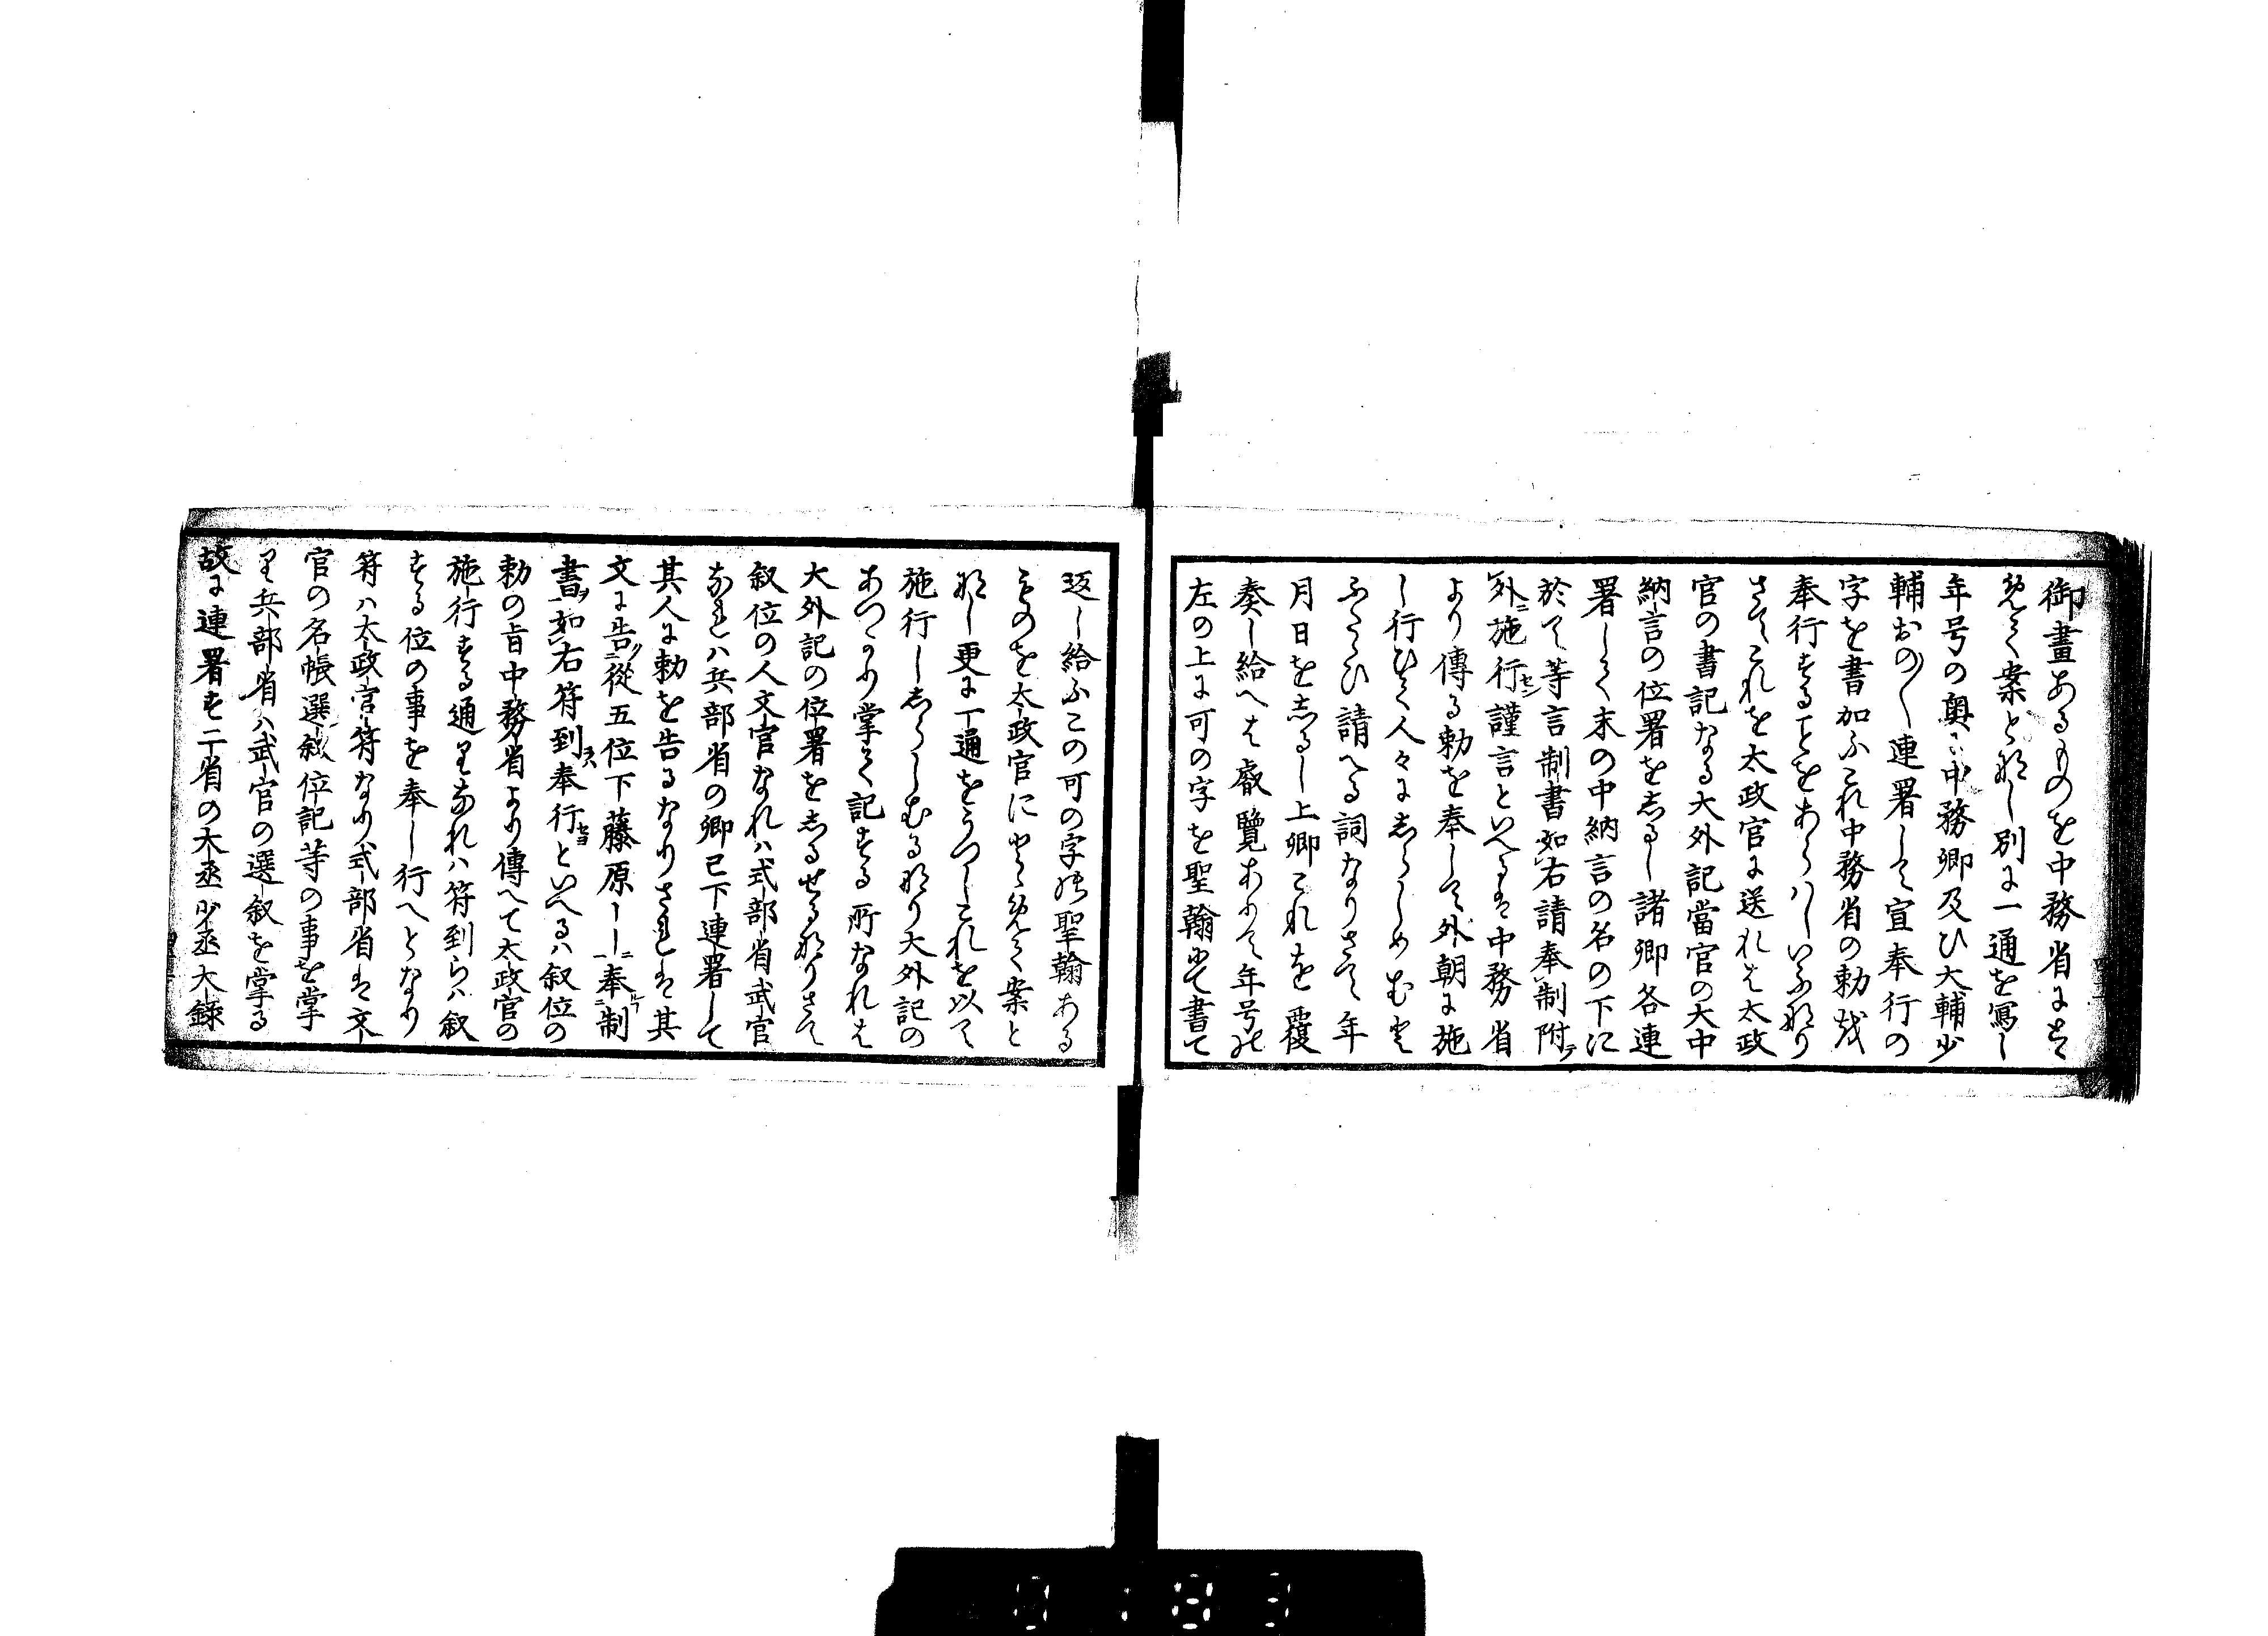 御畫あるものを中務省にとゝ
めて案と那し別に一通を寫し
年号の奥に中務卿及ひ大輔少
輔おの〱連署して宣奉行の
字を書加ふこれ中務省の勅越
奉行することをあらハしいふ那り
さてこれを太政官に送れは太政
官の書記なる大外記當官の大中
納言の位署をしるし諸卿各連
署して末の中納言の名の下に
於て等言制書如右請奉制附
外施行謹言といへるは中務省
より傳る勅を奉して外朝に施
し行ひて人々にしらしめむと
ふたゝひ請へる詞なりさて年
月日をしるし上卿これを覆
奏し給へは叡覽ありて年号能
左の上に可の字を聖翰にて書て
返し給ふこの可の字能聖翰ある
ものを太政官にとゝめて案と
那し更に一通をうつしこれを以て
施行ししらしむる那り大外記の
あつかり掌て記する所なれは
大外記の位署をしるせる那りさて
叙位の人文官なれハ式部省武官
なれハ兵部省の卿已下連署して
其人に勅を告るなりされは其
文に告從五位下藤原〡〡奉制
書如右符到奉行といへるハ叙位の
勅の旨中務省より傳へて太政官の
施行する通りなれハ符到らハ叙
する位の事を奉し行へとなり
符ハ太政官符なり式部省は文
官の名帳選叙位記等の事を掌
り兵部省ハ武官の選叙を掌る
故に連署す二省の大丞少丞大錄